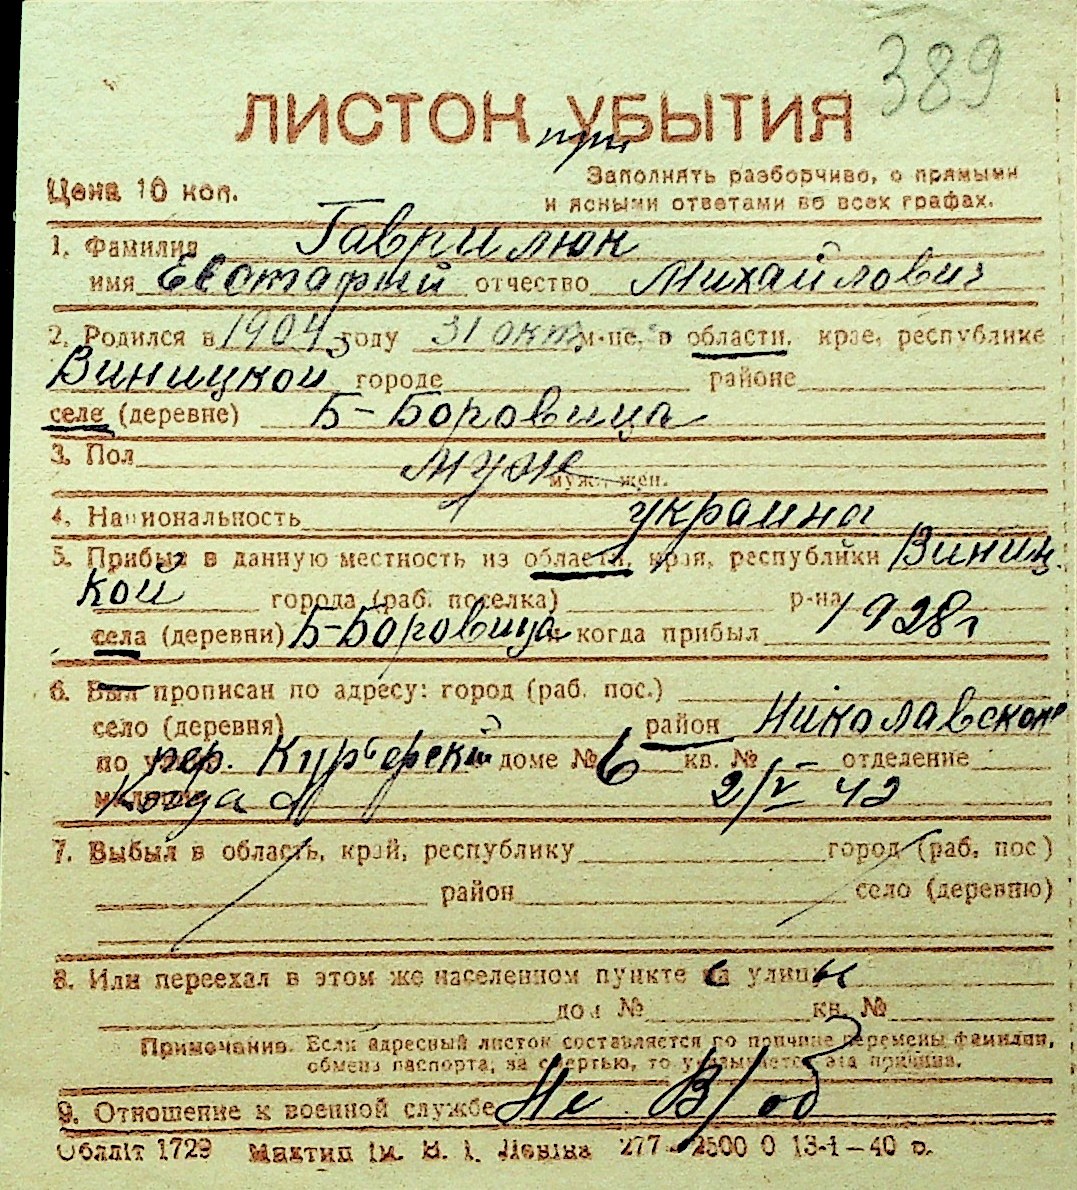 389
ЛИСТОК УБЫТИЯ
при
Цена 10 коп.
Заполнять разборчиво, с прямыми
и ясными ответами во всех графах.
1. Фамилия Гаврилюк
имя Евстафий отчество Михайлович
2. Родился в 1904 году 31 окт м-це, в области, крае, республике
Виницкой городе районе
селе (деревне) Б-Боровица
3. Пол муж
муж., жен.
4. Национальность украина
5. Прибыл в данную местность из области, края, республики Виниц
кой города (раб. поселка) р-на
села (деревни) Б-Боровица и когда прибыл 1928 г
6. Был прописан по адресу: город (раб. пос.)
село (деревня) район Николавском
по ул. пер. Курьерский доме № 6 кв. № отделение
милиции Когда 2/V 42
7. Выбыл в область, край, республику город (раб. пос)
район село (деревню)
8. Или переехал в этом же населенном пункте на улицу
дом № кв. №
Примечание. Если адресный листок составляется по причине перемены фамилии,
обмена паспорта, за смертью, то указывается эта причина.
9. Отношение к военной службе Не В/об
Обллiт 1729 Миктип iм. В. I. Ленiна 277—2500 0 13-1—40 р.